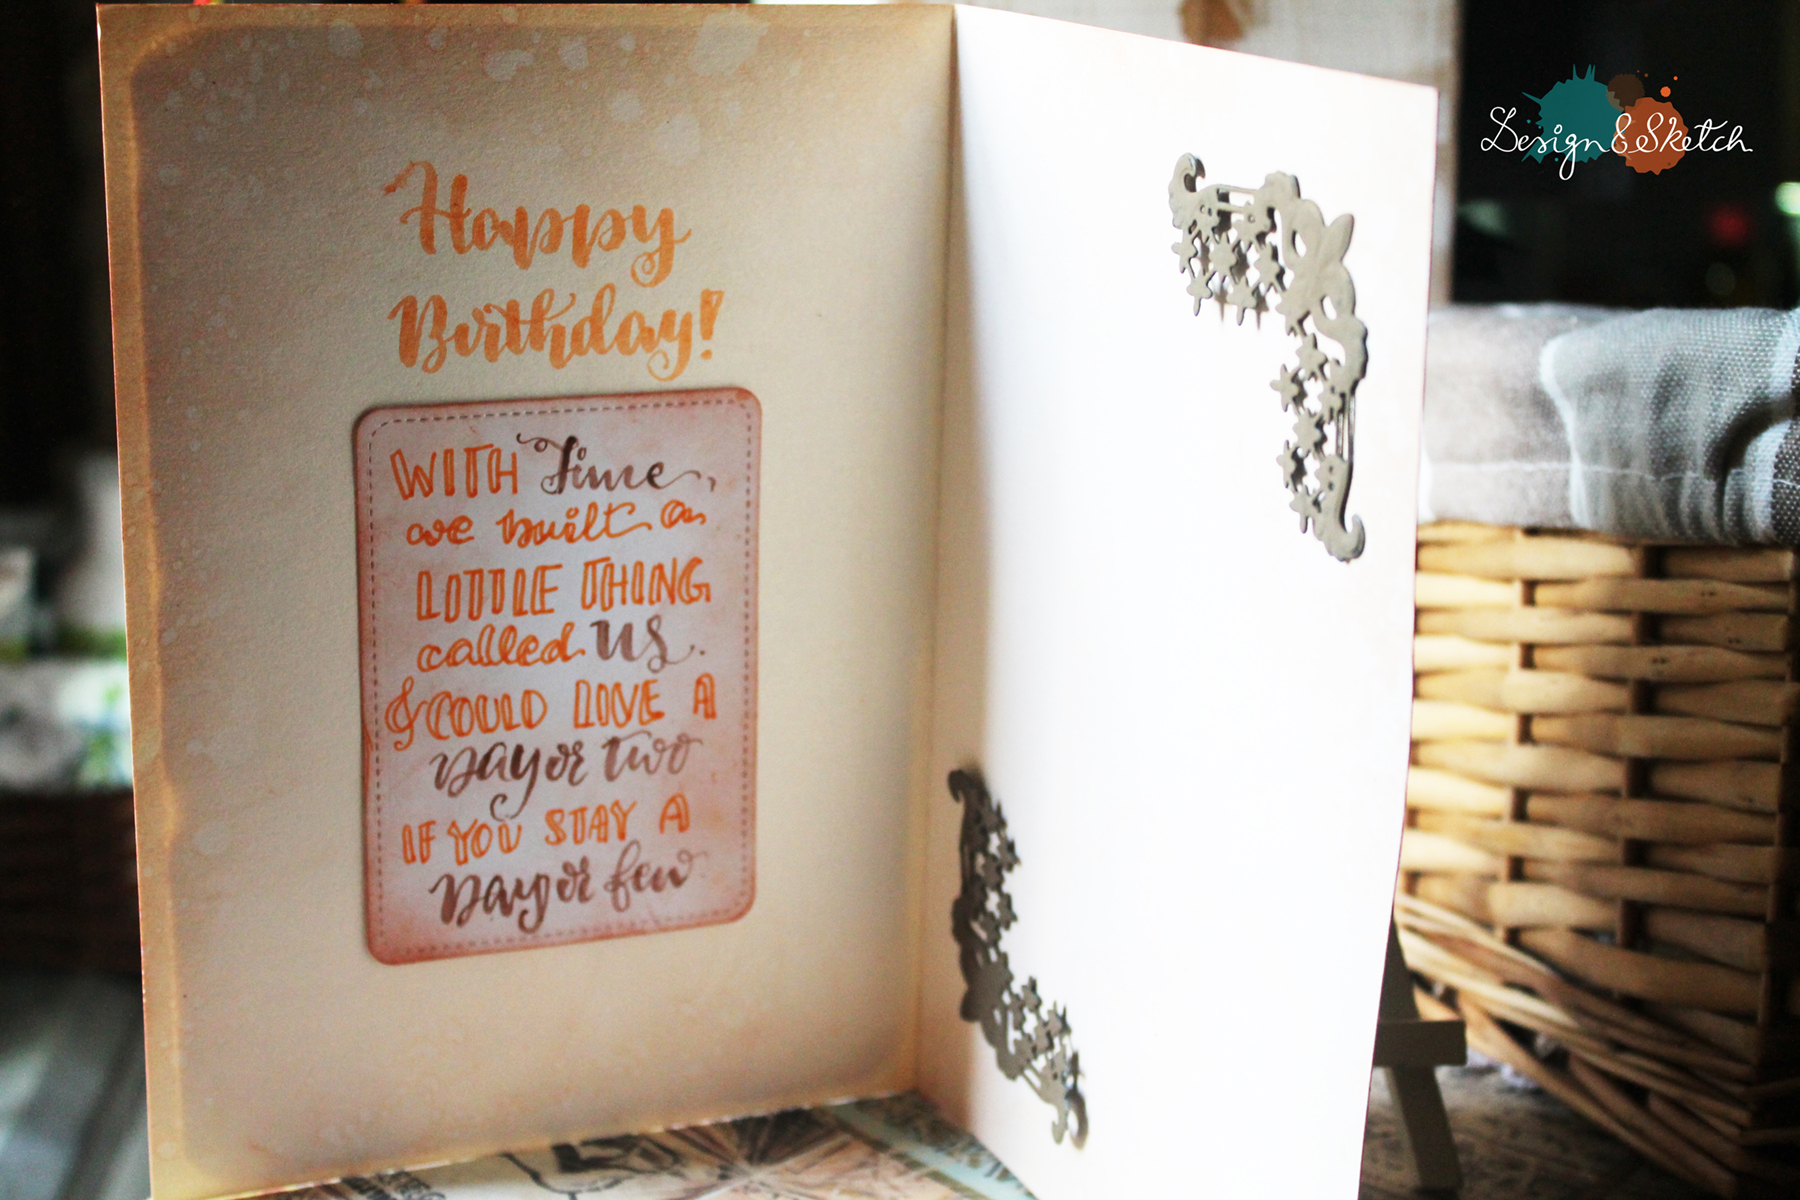 Design&Sketch
Happy
Birthday!
WITH time,
we built a
LITTLE THING
called us.
& COULD LIVE A
Day or two
IF YOU STAY A
Day or few